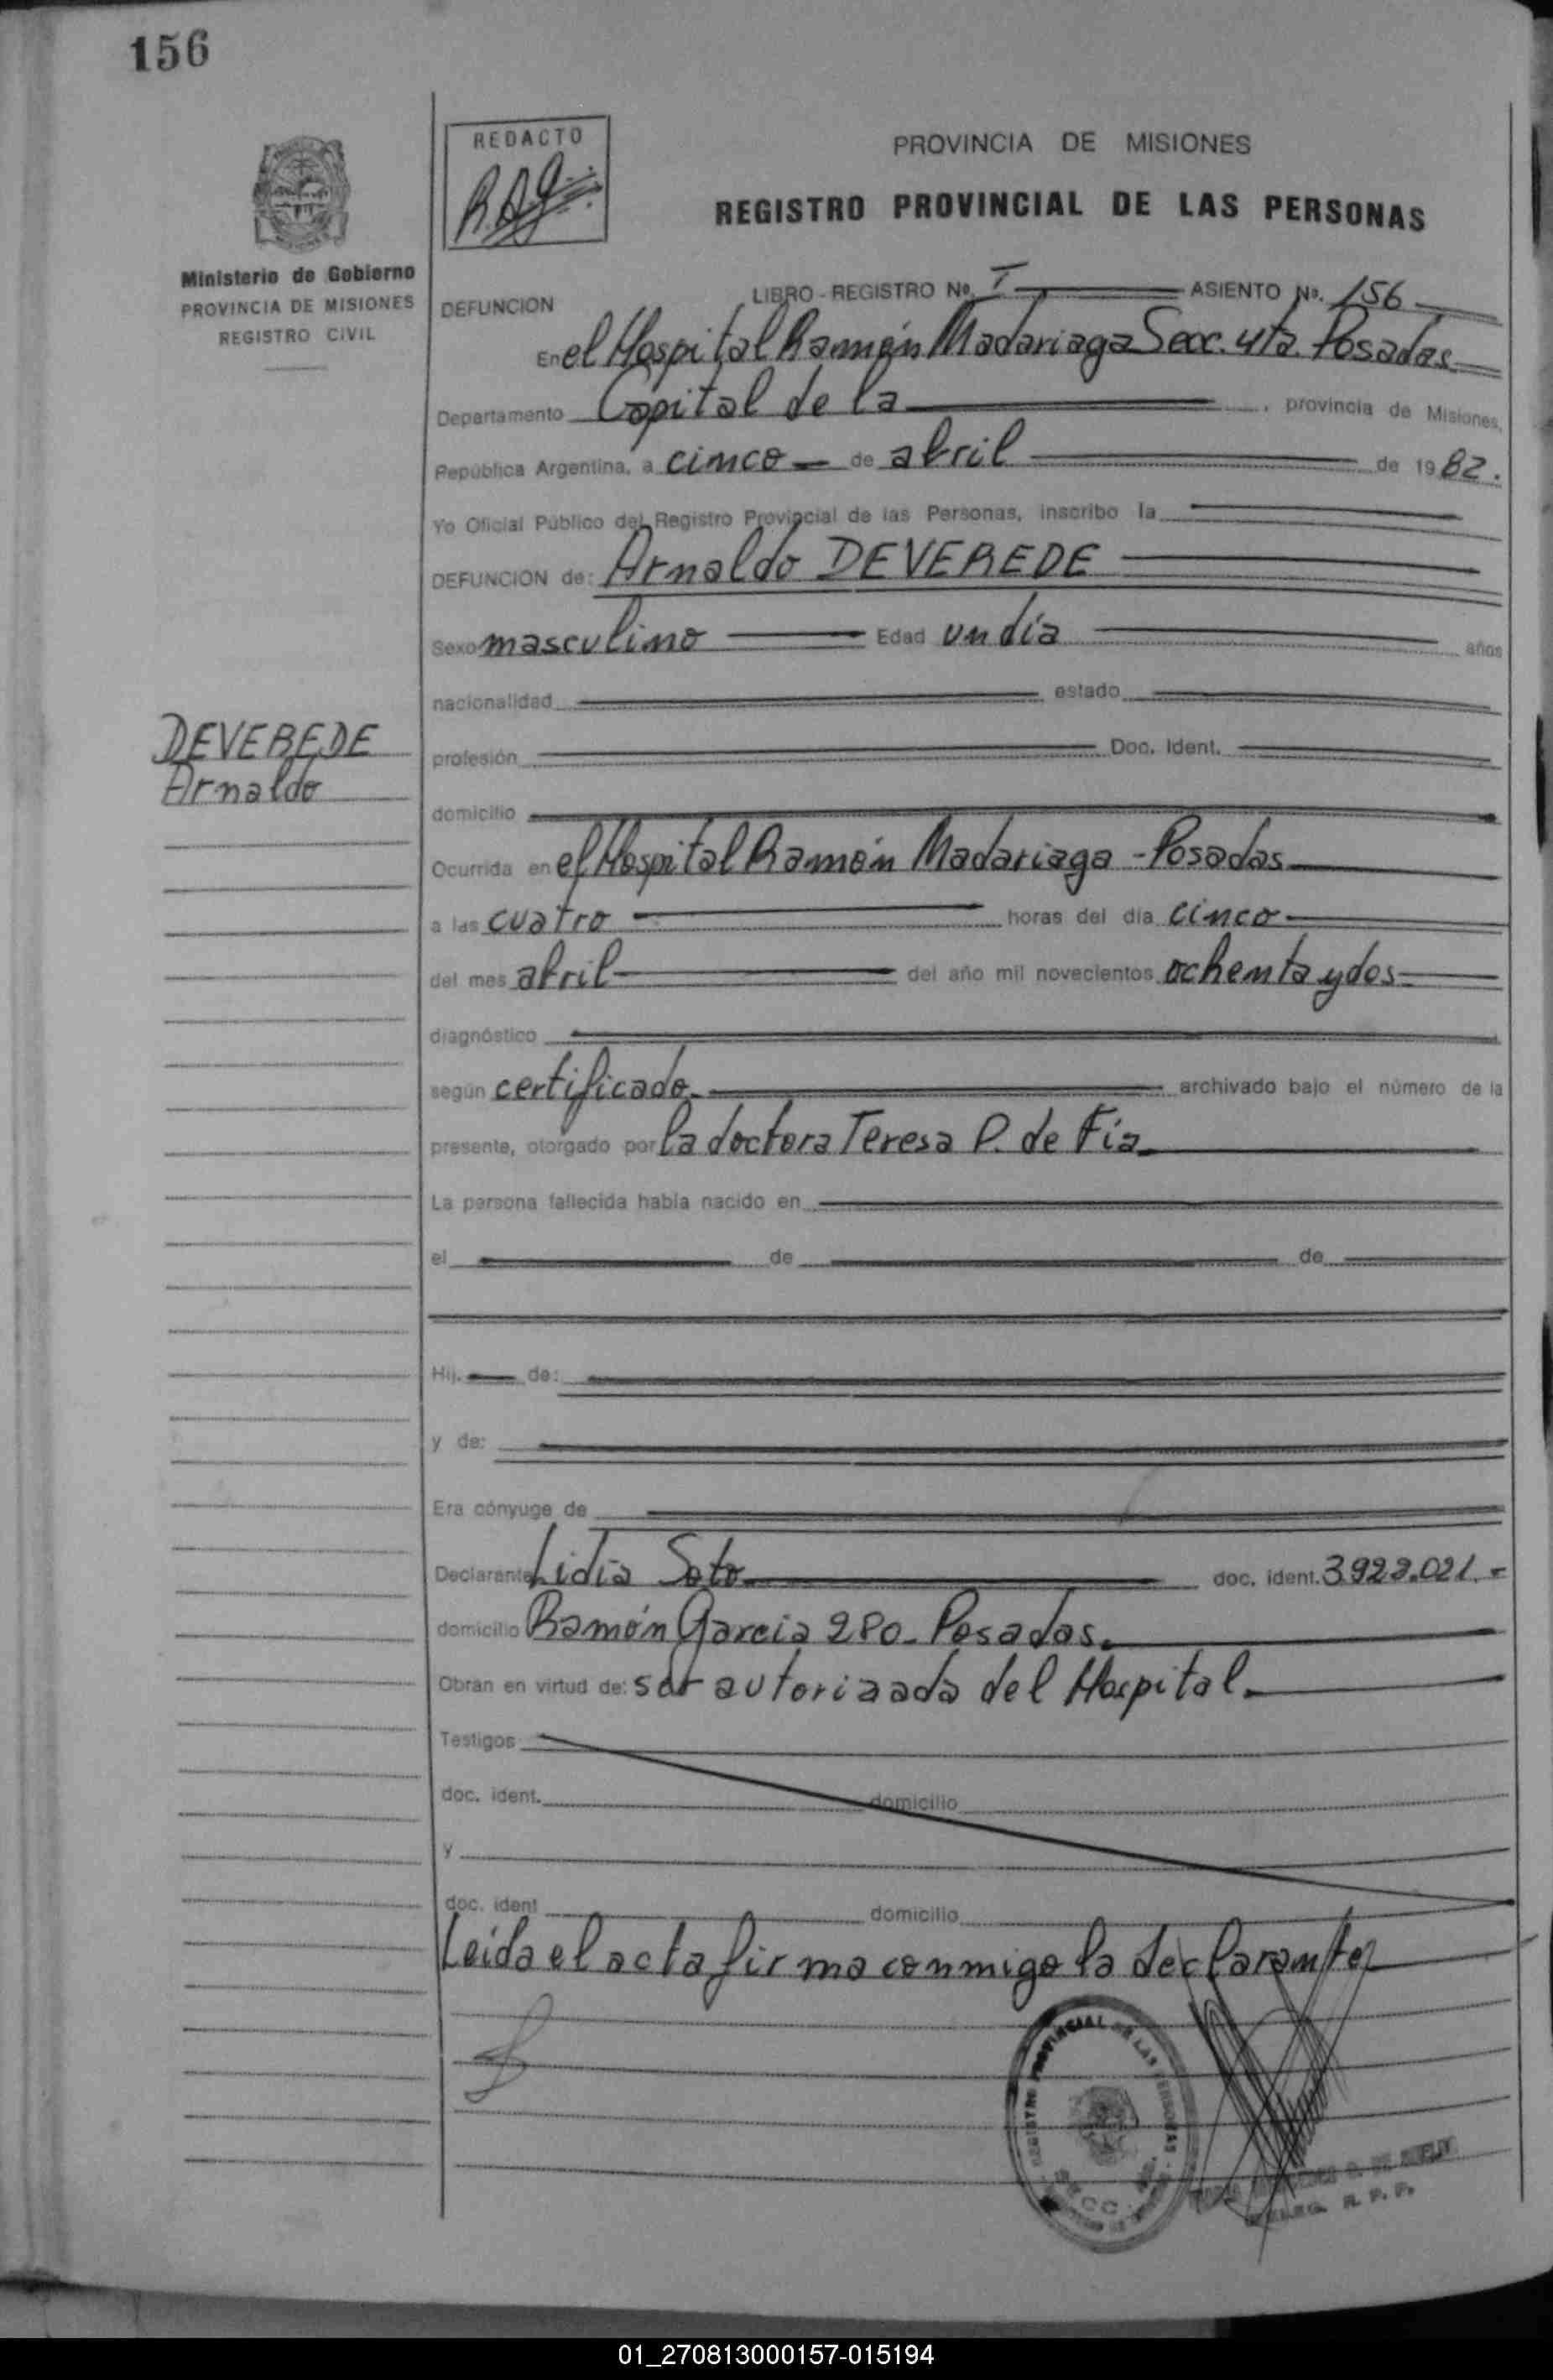 156
REDACTO
PROVINCIA DE MISIONES
REGISTRO PROVINCIAL DE LAS PERSONAS
Ministerio de Gobierno
PROVINCIA DE MISIONES
REGISTRO CIVIL
DEFUNCION
LIBRO - REGISTRO No. I ASIENTO No. 156
En el Hospital Ramón Madariaga Secc. 4ta. Posadas
Departamento Capital de la , provincia de Misiones,
República Argentina, a cinco de abril de 1982.
Yo Oficial Público del Registro Provincial de las Personas, inscribo la
DEFUNCION de: Arnaldo DEVEREDE
Sexo masculino Edad un día años
nacionalidad estado
DEVEREDE
Arnaldo
profesión Doc. Ident.
domicilio
Ocurrida en el Hospital Ramón Madariaga - Posadas
a las cuatro horas del día cinco
del mes abril del año mil novecientos ochenta y dos
diagnóstico
según certificado archivado bajo el número de la
presente, otorgado por la doctora Teresa P. de Fia
La persona fallecida había nacido en
el de de
Hij. de:
y de:
Era cónyuge de
Declarante Lidia Soto doc. ident. 3.923.021.-
domicilio Ramón Garcia 280 - Posadas.
Obran en virtud de: ser autorizada del Hospital.
Testigos
doc. ident. domicilio
y
doc. ident domicilio
Leída el acta firma conmigo la declarante
REGISTRO PROVINCIAL DE LAS PERSONAS
SECC.
R. P. P.
01_270813000157-015194